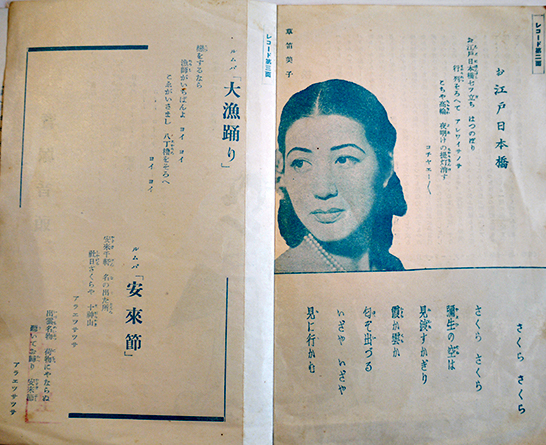 レコード第二面
お江戸日本橋
お江戸日本橋七ツ立ち はつのぼり
行列そろへて アレワイサノサ
こちや高輪 夜明けの提灯消す
コチヤエー〱
草笛美子
さくら さくら
さくら さくら
彌生の空は
見渡すかぎり
霞か雲か
匂ぞ出づる
いざや いざや
見に行かむ
レコード第三面
ルムバ「大漁踊り」
漁師がいちばんよ コイ コイ
こゑがいさまし 八丁櫓をそろへ
コイ コイ
ルムバ「安來節」
安來千軒 名の出た所
社日さくらや 十神山
アラエツサツサ
出雲名物 荷物にやならぬ
聽いてお歸り 安來節
アラエツサツサ